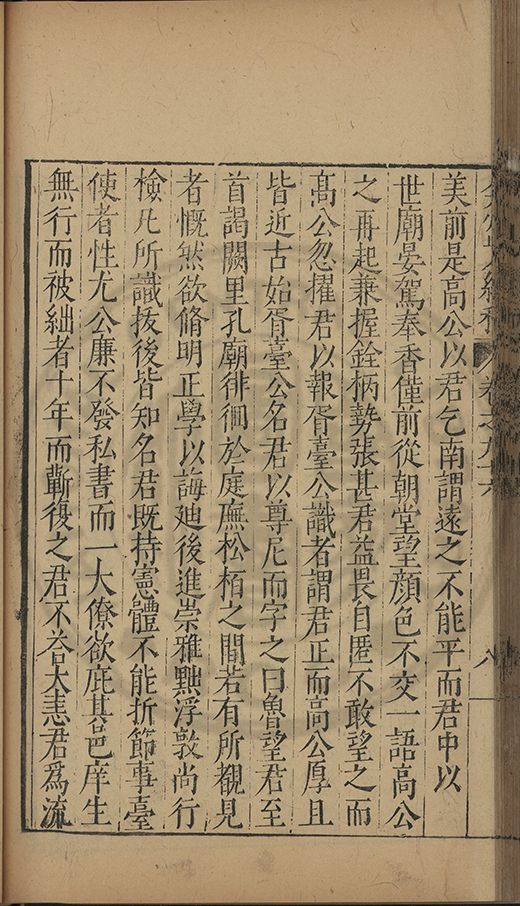 卷之九十六
八
美前是高公以君乞南謂遠之不能平而君中以
世廟晏駕奉香僅前從朝堂望顔色不交一語高公
之再起兼握銓柄勢張甚君益畏自匿不敢望之而
髙公忽擢君以報胥臺公識者謂君正而高公厚且
皆近古始胥臺公名君以尊尼而字之曰魯望君至
首謁闕里孔廟徘徊於庭廡松栢之間若有所覩見
者慨然欲脩明正學以誨廸後進崇雅黜浮敦尚行
檢凡所識拔後皆知名君既持憲體不能折節事臺
使者性尤公廉不發私書而一大僚欲庇其邑庠生
無行而被絀者十年而蘄復之君不荅大恚君爲流